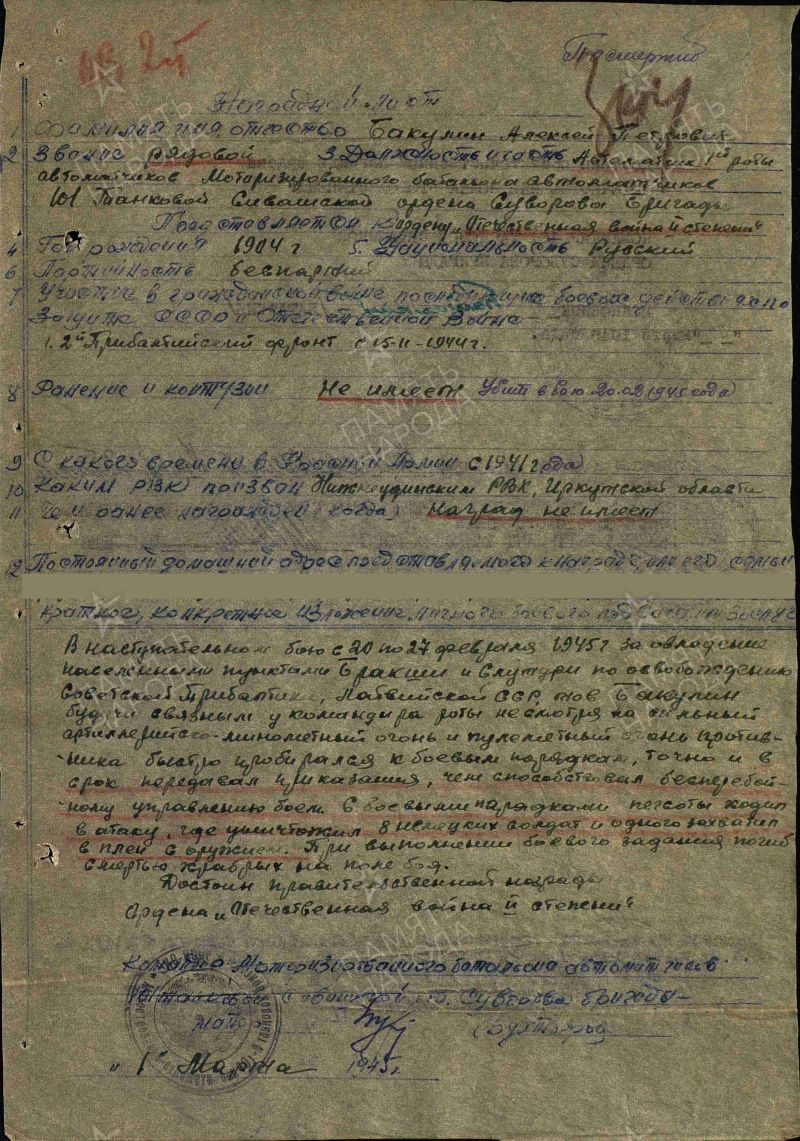 Посмертно
Наградной лист
1 Фамилия имя отчество Бакулин Алексей Петрович
2 Звание рядовой 3 Должность и часть Автоматчик 1ой роты
автоматчиков Моторизированного батальона автоматчиков
101 Танковой Сивашской ордена Суворова бригады
Представляется к ордену „Отечественная война II степени"
4 Год рождения 1904 г 5. Национальность Русский
6 Партийность беспартий
7 Участие в гражданской войне, боевых действиях по
Защите СССР и Отечественной Война
1. 2й Прибалтийский фронт с 15-11-1944г.
8 Ранение и контузии Не имеет Убит в бою 20.02.1945 года
9 С какого времени в Красной Армии с 1941 года
10 Каким РВК призван Нижнеудинским РВК, Иркутской области
11 Чем ранее награжден (когда) Наград не имеет
12 Постоянный домашний адрес представляемого к награде, или его семьи
Краткое, конкретное изложение личного боевого подвига или заслуг
В наступательном бою с 20 по 27 февраля 1945г за овладение
населенными пунктами Бракши и по освобождению
Советской Прибалтики, Латвийской ССР, тов Бакулин
будучи связным у командира роты несмотря на сильный
артиллерийско-минометный огонь и пулеметный огонь против-
ника быстро пробирался к боевым порядкам, точно и в
срок передавал приказания, чем способствовал бесперебой-
ному управлению боем. С боевыми порядками пехоты ходил
в атаку, где уничтожил 8 немецких солдат и одного захватил
в плен с оружием. При выполнении боевого задания погиб
смертью храбрых на поле боя.
Достоин правительственной награды
Ордена „Отечественная война II степени"
Командир Моторизированного батальона автоматчиков
майор
„1" Марта 1945г
ПАМЯТЬ НАРОДА